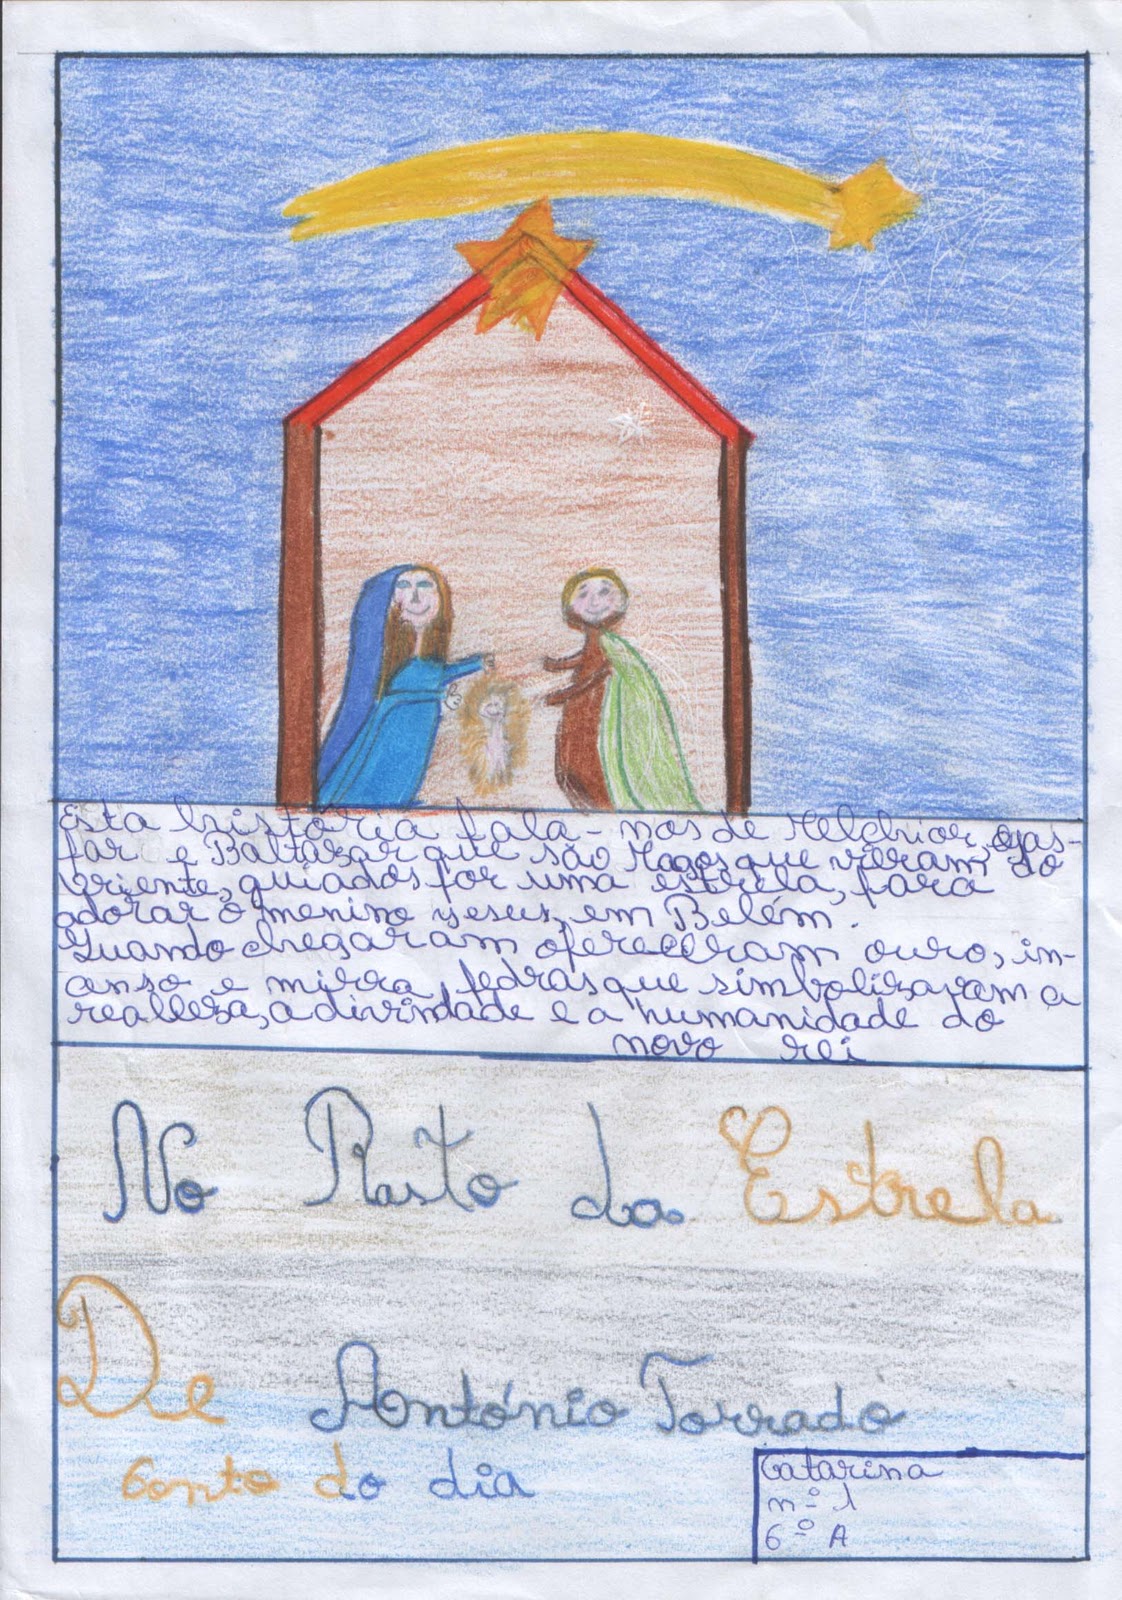 Esta história fala-nos de Melchior, Gas-
par e Baltazar que são Magos que vieram do
Oriente, guiados por uma estrela, para
adorar o menino Jesus, em Belém.
Quando chegaram ofereceram ouro, in-
censo e mirra, pedras que simbolizavam a
realleza, a divindade e a humanidade do
novo rei
No Rasto da Estrela
De António Torrado
Conto do dia
Catarina
nº 1
6º A